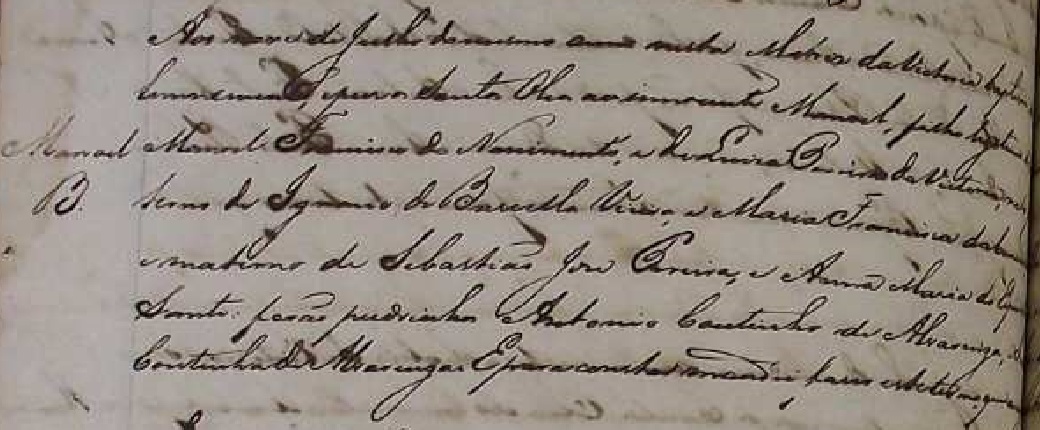 Aos nove de Julho do mesmo anno nesta Matriz da Victoria baptizou
solemnemente, e pus os Santos Oleos ao innocente Manoel, filho legitimo
Manoel Manoel Francisco do Nascimento, e de Luiza Pereira da Victoria, ne
B. terno de Ignacio de Barcellos Vieira, e Maria Francisca da
e materno de Sebastião José Pereira, e Anna Maria do Espirito
Santo: forão padrinhos Antonio Coutinho de Alvarenga,
Coutinho de Alvarenga. E para constar mandei fazer este termo, que